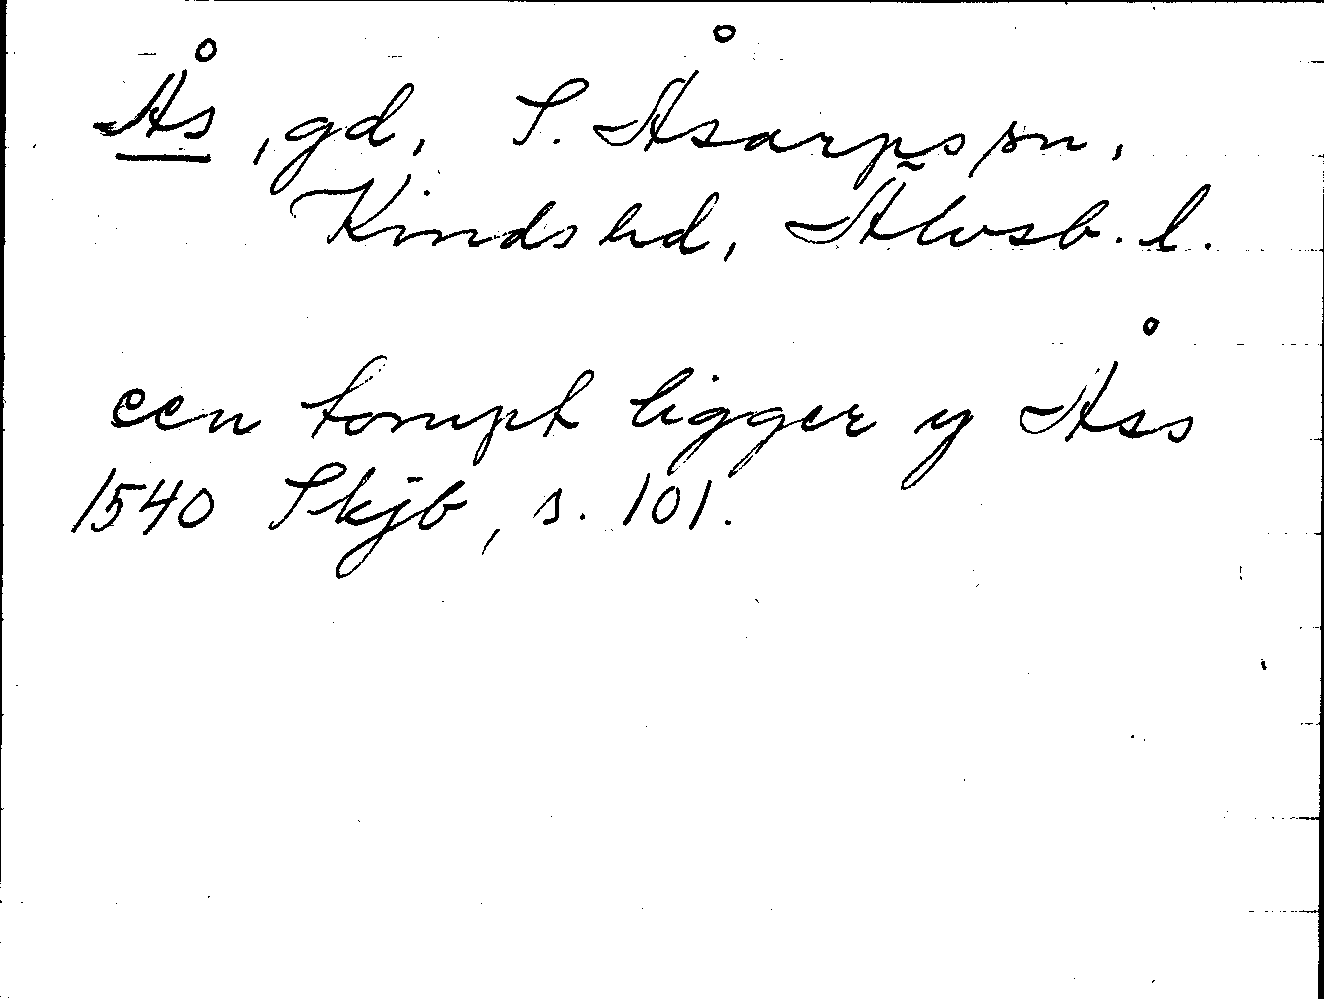 Ås, gd, S. Åsarps sn,
Kinds hd, Älvsb. l.
een tompt ligger y Åss
1540 Skjb, s. 101.